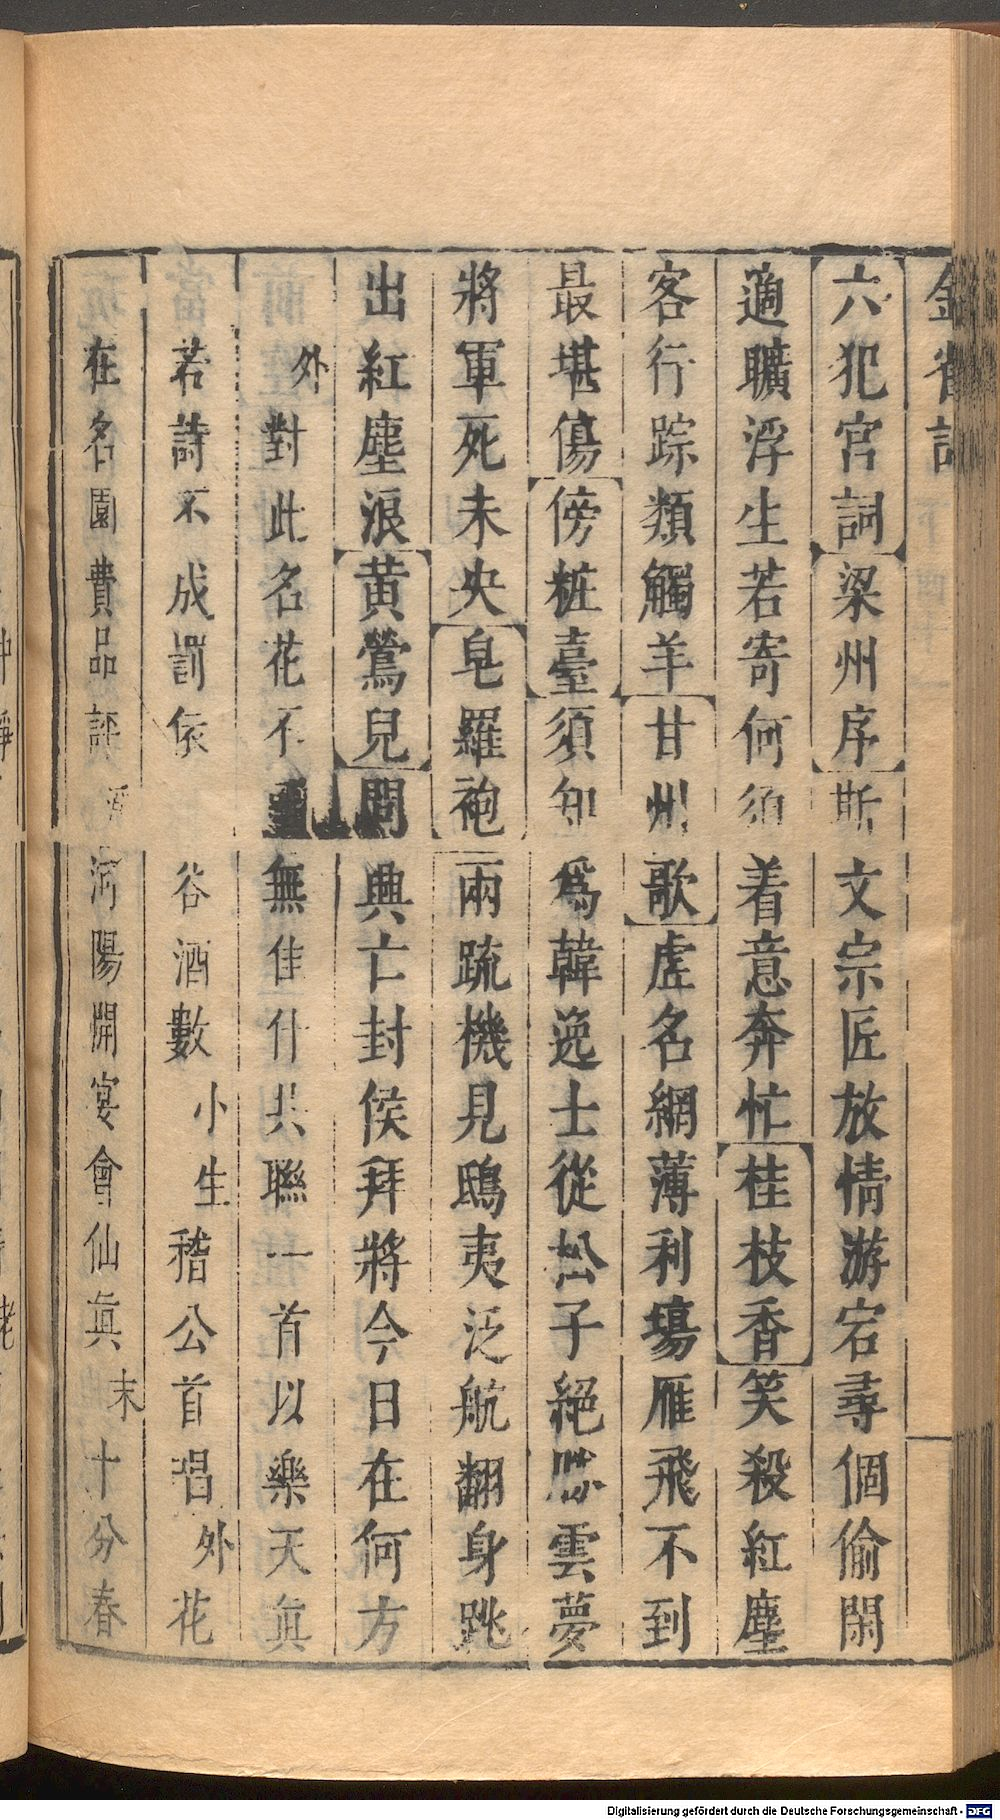 六犯宮詞梁州序斯文宗匠放情游宕尋個偷閑
適曠浮生若寄何須着意奔忙桂枝香笑殺紅塵
客行踪類觸羊甘州歌虛名網薄利場雁飛不到
最堪傷傍桩臺須知為韓逸士從松子絕勝雲夢
將軍死未央皂羅袍兩疏機見鴟夷泛航翻身跳
出紅塵浪黄鶯兒問興亡封侯拜將今日在何方
外對此名花不無佳什共聯一首以樂天真
若詩不成罰依谷酒數小生稽公首唱外花
在名園費品評河陽開宴會仙真末十分春
Digitalisierung gefördert durch die Deutsche Forschungsgemeinschaft - DFG